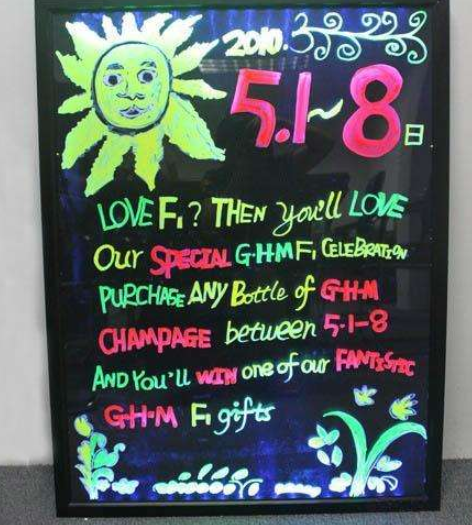 2010.
5.1~8日
LOVE F1? THEN you'll LOVE
Our SPECIAL G·H·M F1 CELEBRATION
PURCHASE ANY Bottle of G·H·M
CHAMPAGE between 5-1-8
AND You'll WIN one of our FANTISTIC
G·H·M F1 gifts